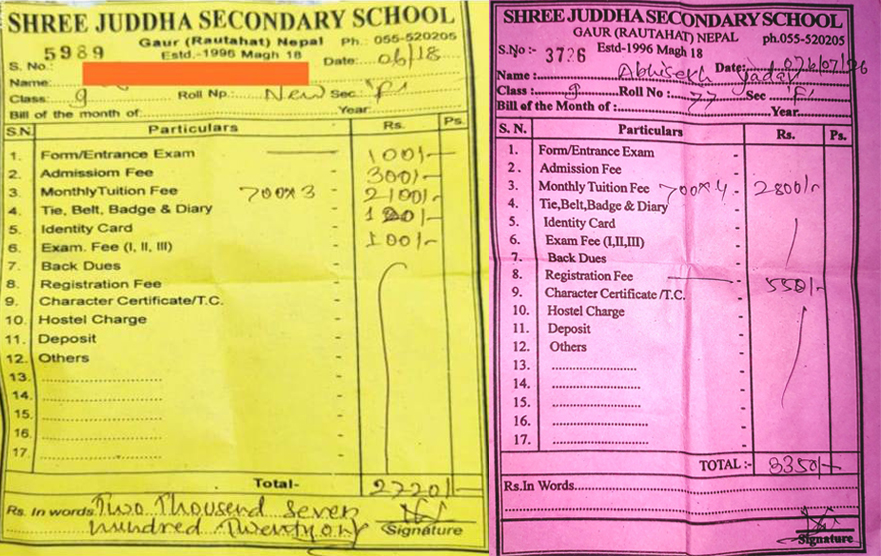 SHREE JUDDHA SECONDARY SCHOOL
Gaur (Rautahat) Nepal Ph.: 055-520205
Estd.-1996 Magh 18
S. No.: 5989 Date: 06/18
Name:
Class: 9 Roll Np.: New Sec.: 'F'
Bill of the month of: Year:
S.N. Particulars Rs. Ps.
1. Form/Entrance Exam - 100/-
2. Admissiom Fee - 300/-
3. MonthlyTuition Fee 700x3 - 2100/-
4. Tie, Belt, Badge & Diary - 120/-
5. Identity Card -
6. Exam. Fee (I, II, III) - 100/-
7. Back Dues -
8. Registration Fee -
9. Character Certificate/T.C. -
10. Hostel Charge -
11. Deposit -
12. Others -
13. ........................ -
14. ........................ -
15. ........................ -
16. ........................ -
17. ........................ -
Total- 2720/-
Rs. In words Two Thousand Seven
hundred Twenty only
Signature
SHREE JUDDHA SECONDARY SCHOOL
GAUR (RAUTAHAT) NEPAL ph.055-520205
S.No :- 3726 Estd-1996 Magh 18
Date: 076/07/26
Name : Abhisekh Yadav
Class : 9 Roll No : 77 Sec 'F'
Bill of the Month of : Year
S. N. Particulars Rs. Ps.
1. Form/Entrance Exam -
2. Admission Fee -
3. Monthly Tuition Fee 700x4 - 2800/-
4. Tie,Belt,Badge & Diary -
5. Identity Card -
6. Exam Fee (I,II,III) -
7. Back Dues -
8. Registration Fee - 550/-
9. Character Certificate /T.C. -
10. Hostel Charge -
11. Deposit -
12. Others -
13. ........................ -
14. ........................ -
15. ........................ -
16. ........................ -
17. ........................ -
TOTAL :- 3350/-
Rs.In Words
Signature